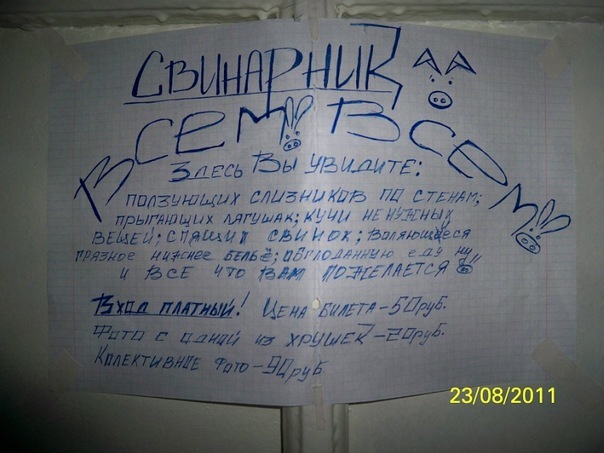 СВИНАРНИК
ВСЕМ ВСЕМ
ЗДЕСЬ ВЫ УВИДИТЕ:
ПОЛЗУЮЩИХ СЛИЗНИКОВ ПО СТЕНАМ;
ПРЫГАЮЩИХ ЛЯГУШАК; КУЧИ НЕ НУЖНЫХ
ВЕЩЕЙ; СПЯЩИХ СВИНОК; ВОЛЯЮЩЕЕСЯ
ГРЯЗНОЕ НИЖНЕЕ БЕЛЬЁ; ОБГЛОДАННУЮ ЕДУ НУ
И ВСЕ ЧТО ВАМ ПОЖЕЛАЕТСЯ
ВХОД ПЛАТНЫЙ! ЦЕНА БИЛЕТА-50РУБ.
ФОТО С ОДНОЙ ИЗ ХРУШЕК-20РУБ.
КОЛЕКТИВНОЕ ФОТО-90РУБ.
23/08/2011